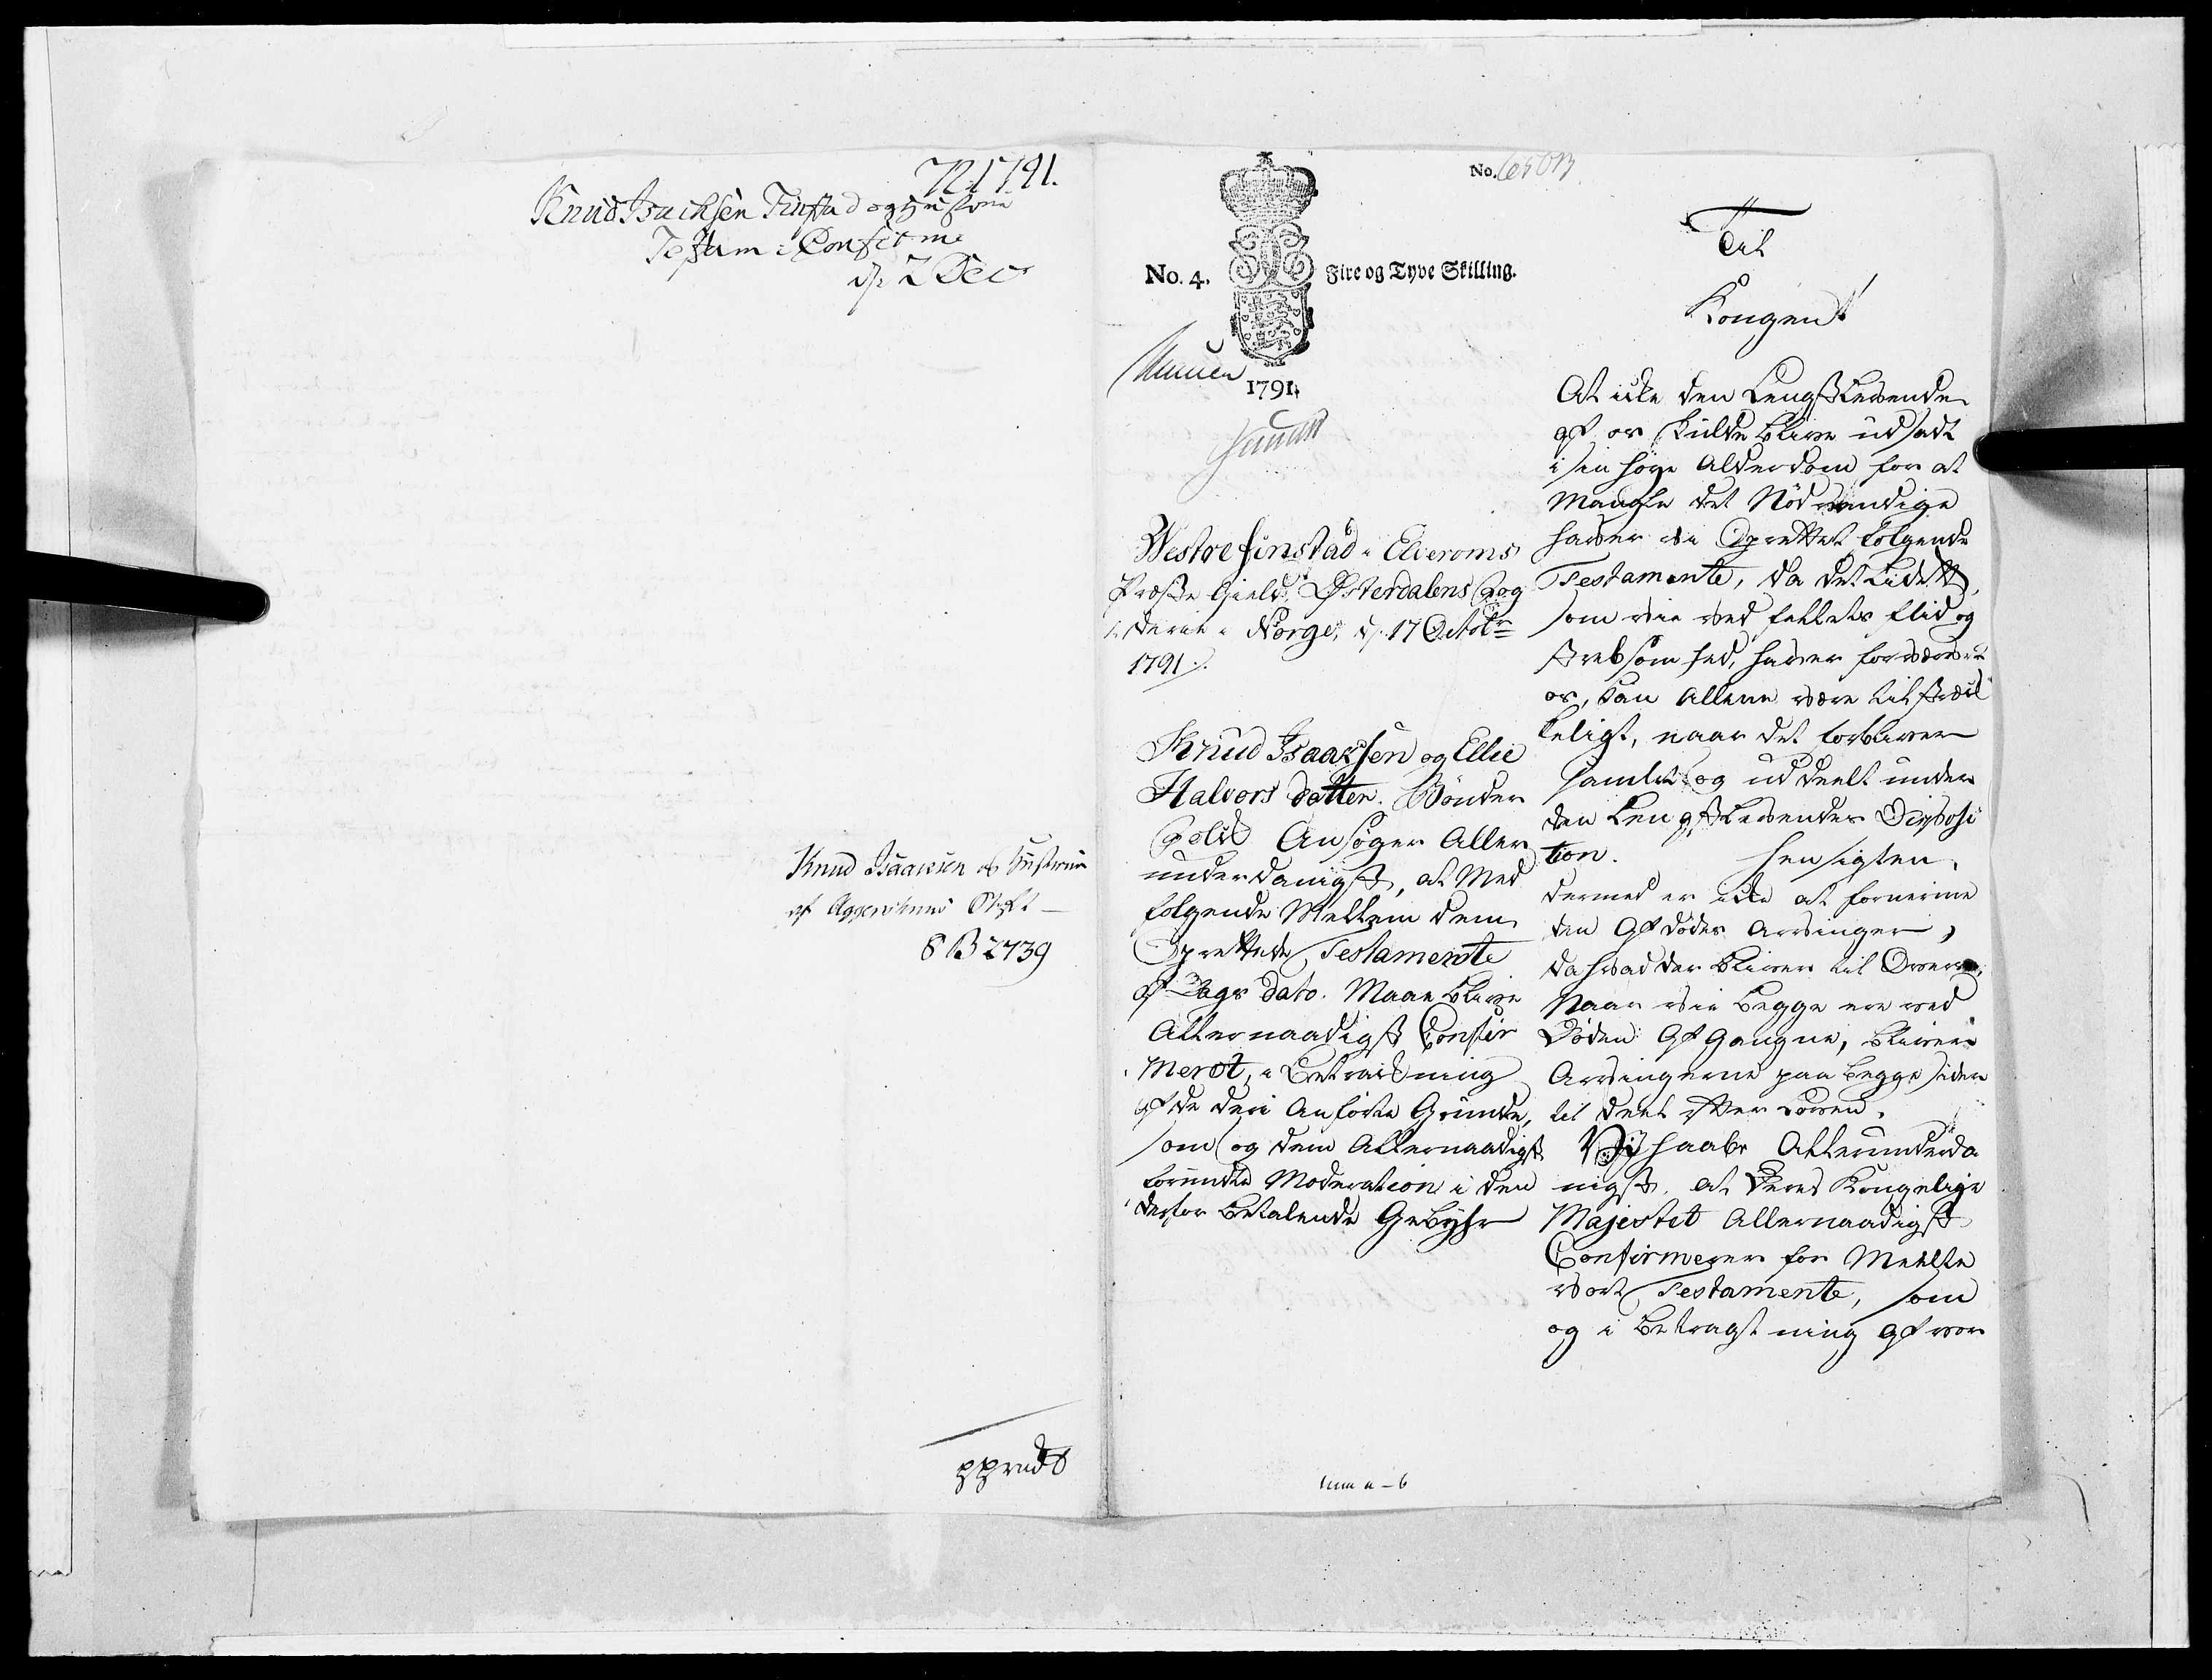 72. 1791.
Knud Isachsen Finstad og Hustrue
Testam: Confirme
d: 2 Dec
Knud Isaacsen og Hustrue
af Aggershuus Stift
8 B 2739
pprædt
No.
No. 4.
Fire og Tyve Skilling.
1791.
Westre finstad i Elveroms
Præste Gield, Østerdalens Fog
derie i Norge, d. 17 Octobr
1791.
Knud Isaaksen og Ellie
Halvors datter. Bönder
Folk Ansøger Aller
underdanigst, at Med
følgende Mellem dem
Oprettede Testamente
af Dags dato. Maae blive
Allernaadigst Confir
meret, i Betragtning
af de deri Anførte Grunde,
som og dem Allernaadigst
forundte Moderation i den
derfor betalende Gebyhr
Til
Kongen!
At icke den Lengstlevende
af os skulde blive udsadt
i sin høye Alderdom for at
Mangle det Nødvendige
haver vi Oprettet følgende
Testamente, da det lidet,
som vie ved fælles flid og
stræbsomhed, haver forværvet
os, kan Allene være tilstræk
keligt, naar det forbliver
samlet og udeelt under
den Lengstlevendes Disposi
tion. Hensigten,
dermed er icke at fornerme
den Afdødes Arvinger,
da hvad der bliver til Overs,
Naar vie begge ere ved
Døden Afgangne, bliver
Arvingerne paa begge sider
til deel efter Loven.
Vi haaber Allerunderda
nigst, at Deres Kongelige
Majestet Allernaadigst
Confirmerer for Meelte
vort Testamente, som
og i betragtning af vor